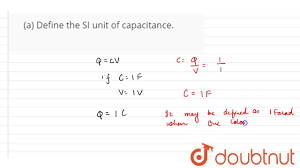 (a) Define the SI unit of capacitance.
Q = CV
C = Q/V = 1/1
if C = 1 F
V = 1V
C = 1F
Q = 1 C
It may be defined as 1 Farad
when One
doubtnut